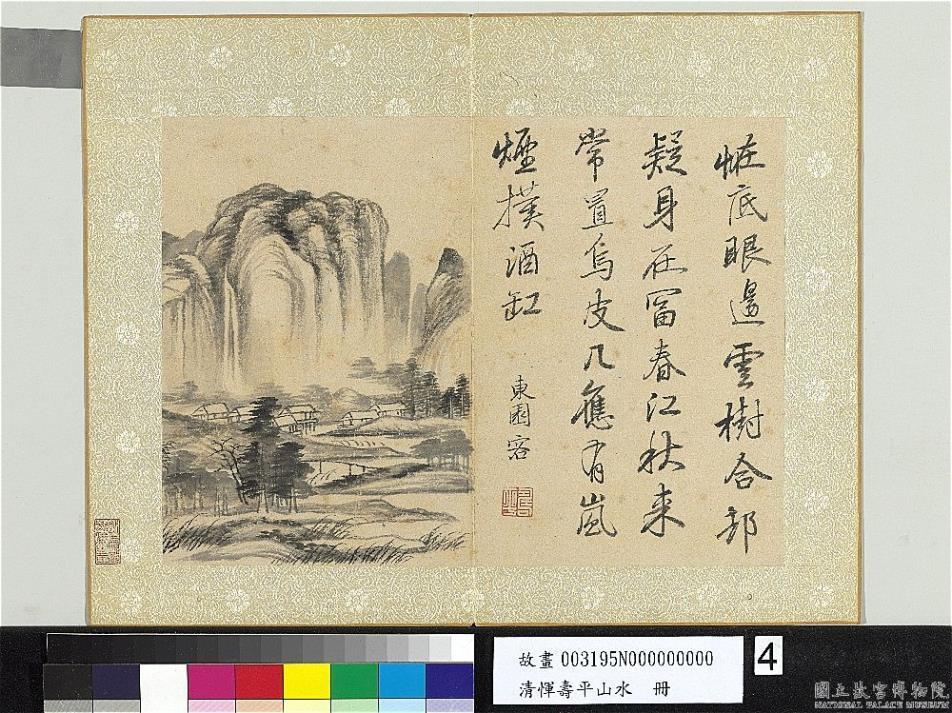 恠底眼邊雲樹合郤
疑身在冨春江秋来
常置烏皮几應有嵐
煙撲酒缸
東園客
故畫 003195N000000000
清惲壽平山水 冊
4
國立故宮博物院
NATIONAL PALACE MUSEUM